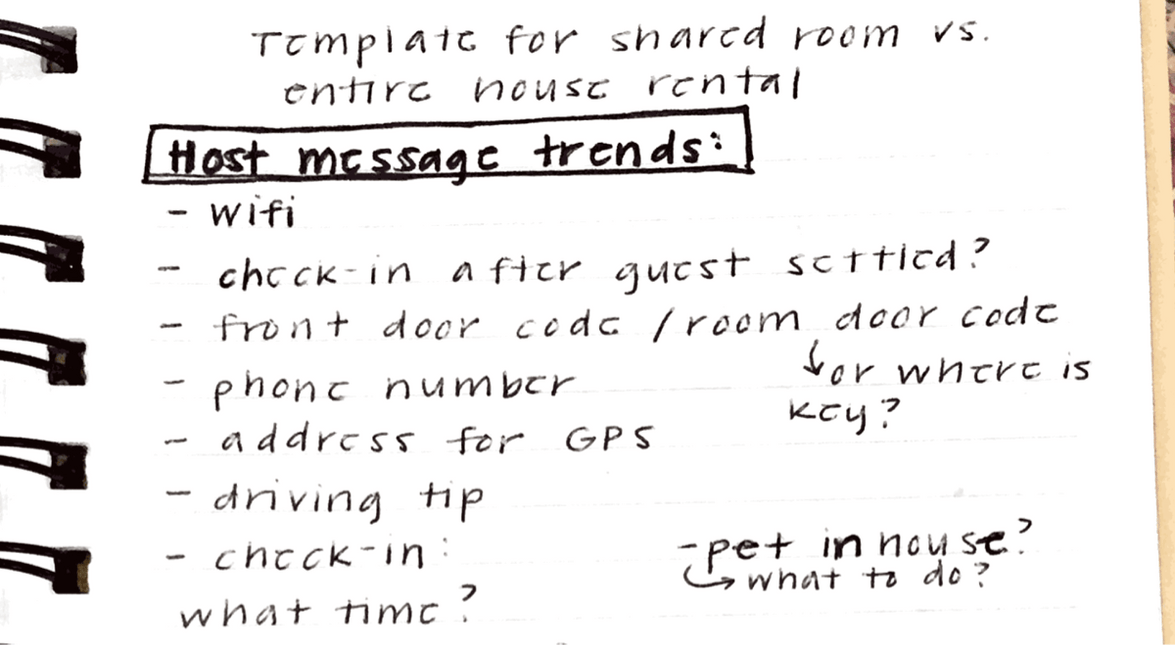 Template for shared room vs.
entire house rental
Host message trends:
- wifi
- check-in after guest settled?
- front door code / room door code
↳ or where is
key?
- phone number
- address for GPS
- driving tip
- check-in:
what time?
- pet in house?
↳ what to do?